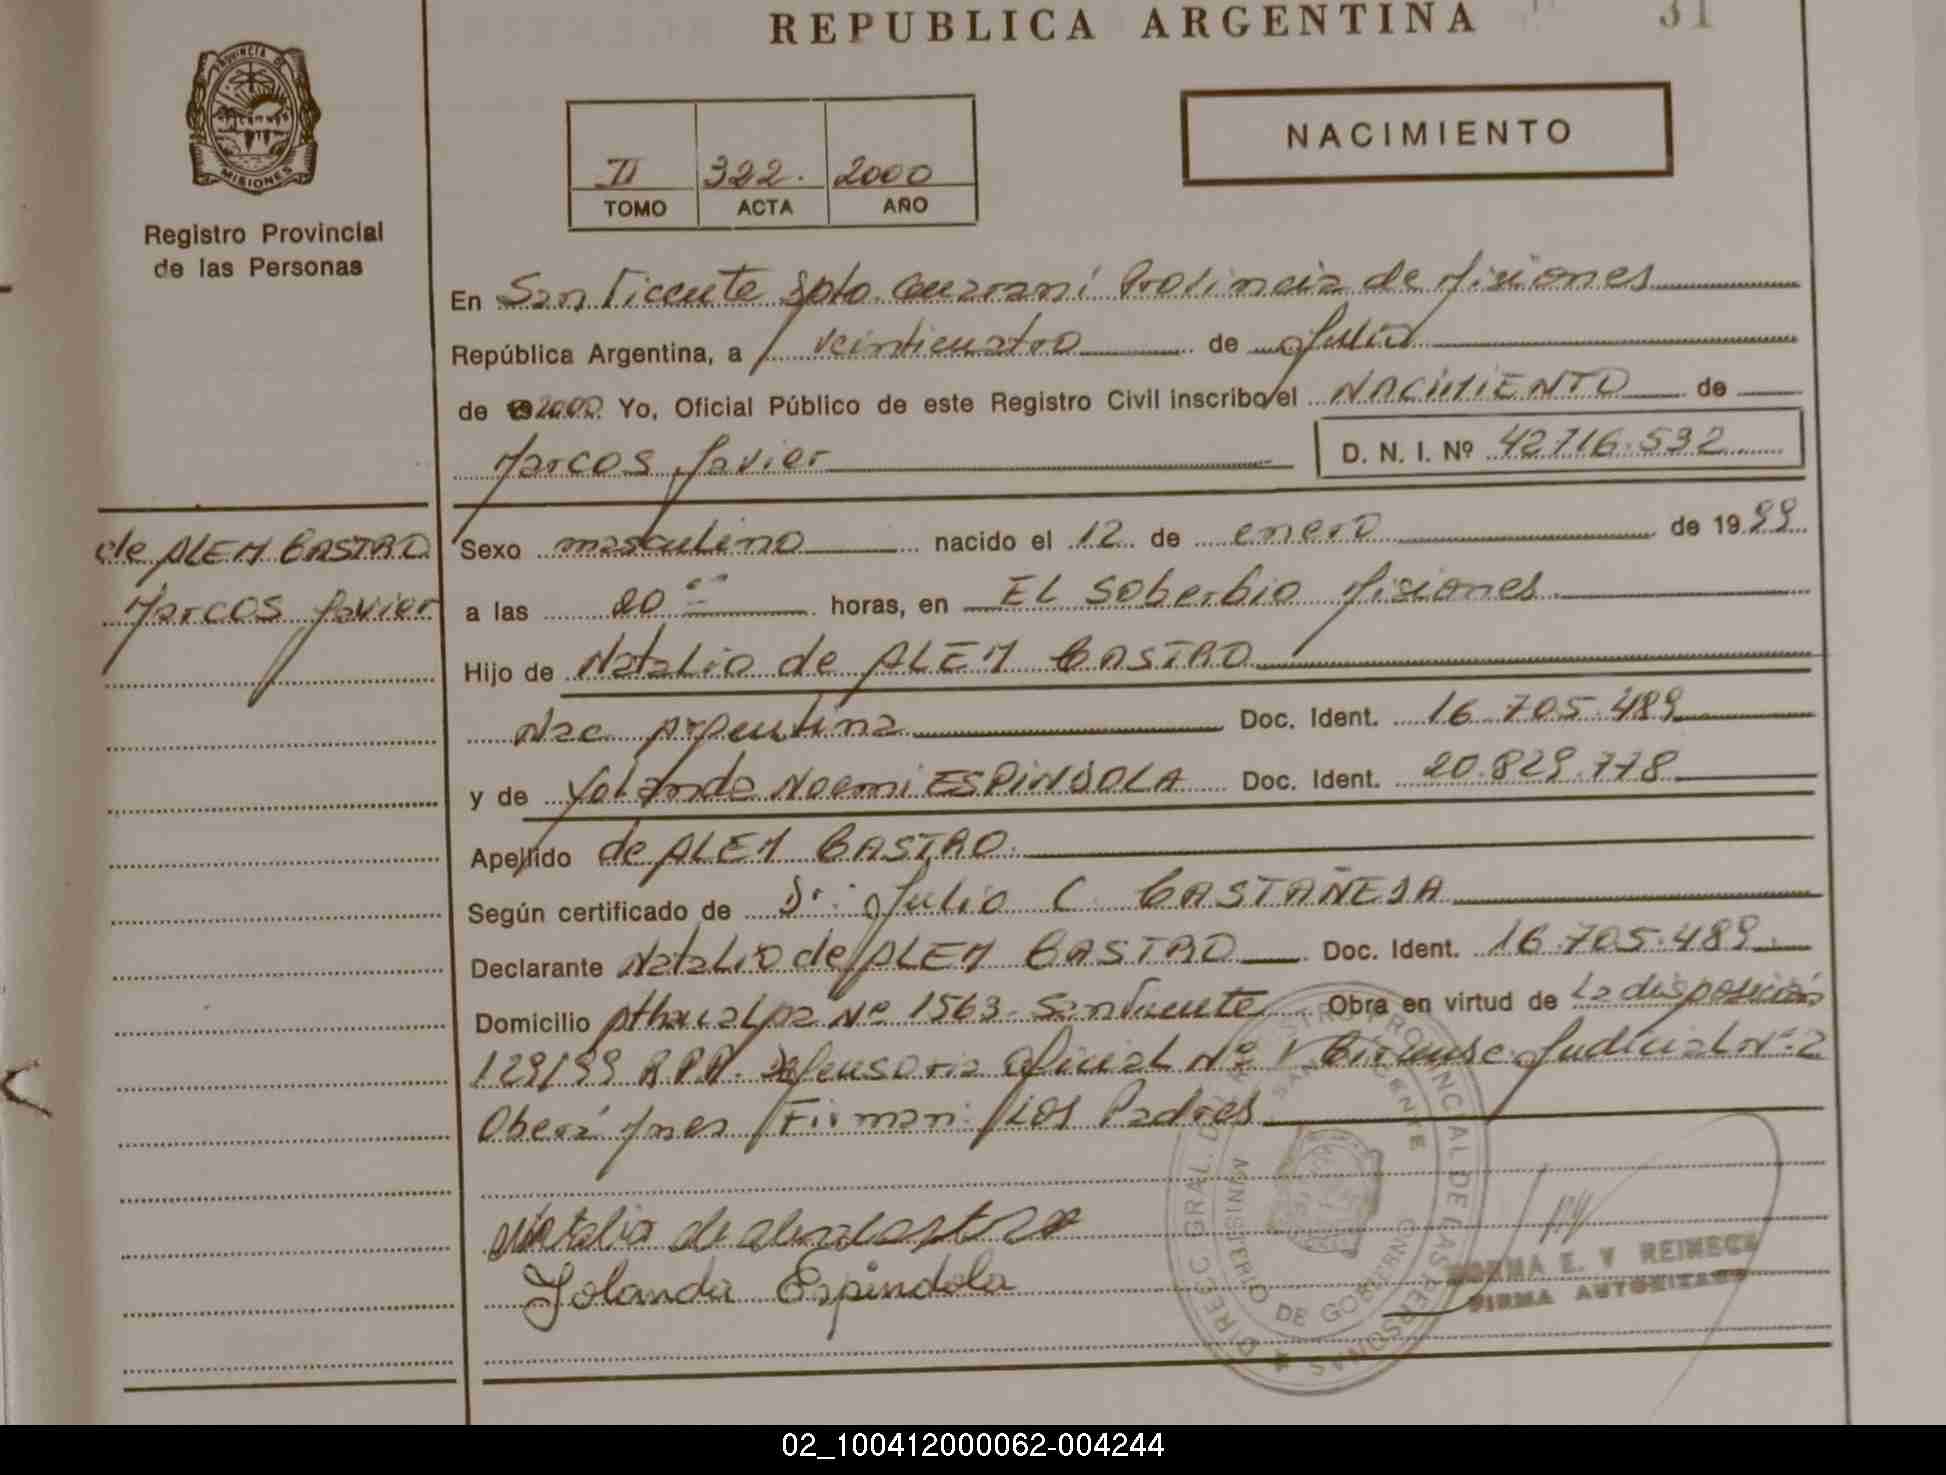 REPUBLICA ARGENTINA
31
PROVINCIA DE
MISIONES
Registro Provincial
de las Personas
NACIMIENTO
II 322. 2000
TOMO ACTA AÑO
En San Vicente Dpto. Guaraní Provincia de Misiones
República Argentina, a veinticuatro de Julio
de 2000 Yo, Oficial Público de este Registro Civil inscribo el NACIMIENTO de
Marcos Javier D. N. I. Nº 42716.532
de ALEM CASTRO
Marcos Javier
Sexo masculino nacido el 12 de enero de 1999
a las 20 horas, en El Soberbio Misiones
Hijo de Natalio de ALEM CASTRO
Nac Argentina Doc. Ident. 16.705.489
y de Yolanda Noemi ESPINDOLA Doc. Ident. 20.829.778
Apellido de ALEM CASTRO.
Según certificado de Dr. Julio C. CASTAÑEDA
Declarante Natalio de ALEM CASTRO Doc. Ident. 16.705.489.
Domicilio Athualpa Nº 1563 San Vicente Obra en virtud de la disposición
129/99 R.P.P. Defensoria Oficial Nº 1 Circunsc. Judicial Nº 2
Oberá Mnes Firman: Los Padres
Natalio de alem castro
Yolanda Espindola
REGISTRO PROVINCIAL DE LAS PERSONAS
SAN VICENTE
MINISTERIO DE GOBIERNO
NORMA E. V REINECK
FIRMA AUTORIZADA
02_100412000062-004244